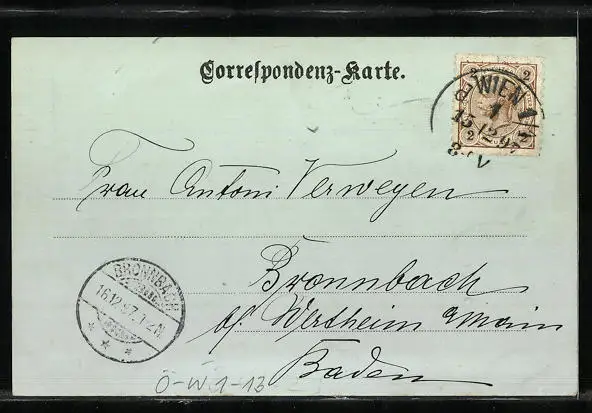 Correspondenz-Karte.
2 2
WIEN 1/1
15 12 97
8-V
2 2
Frau Antoni Verwegen
Bronnbach
b/ Wertheim a/Main
Baden
BRONNBACH
16.12.97.1-2N.
Ö-W 1-13